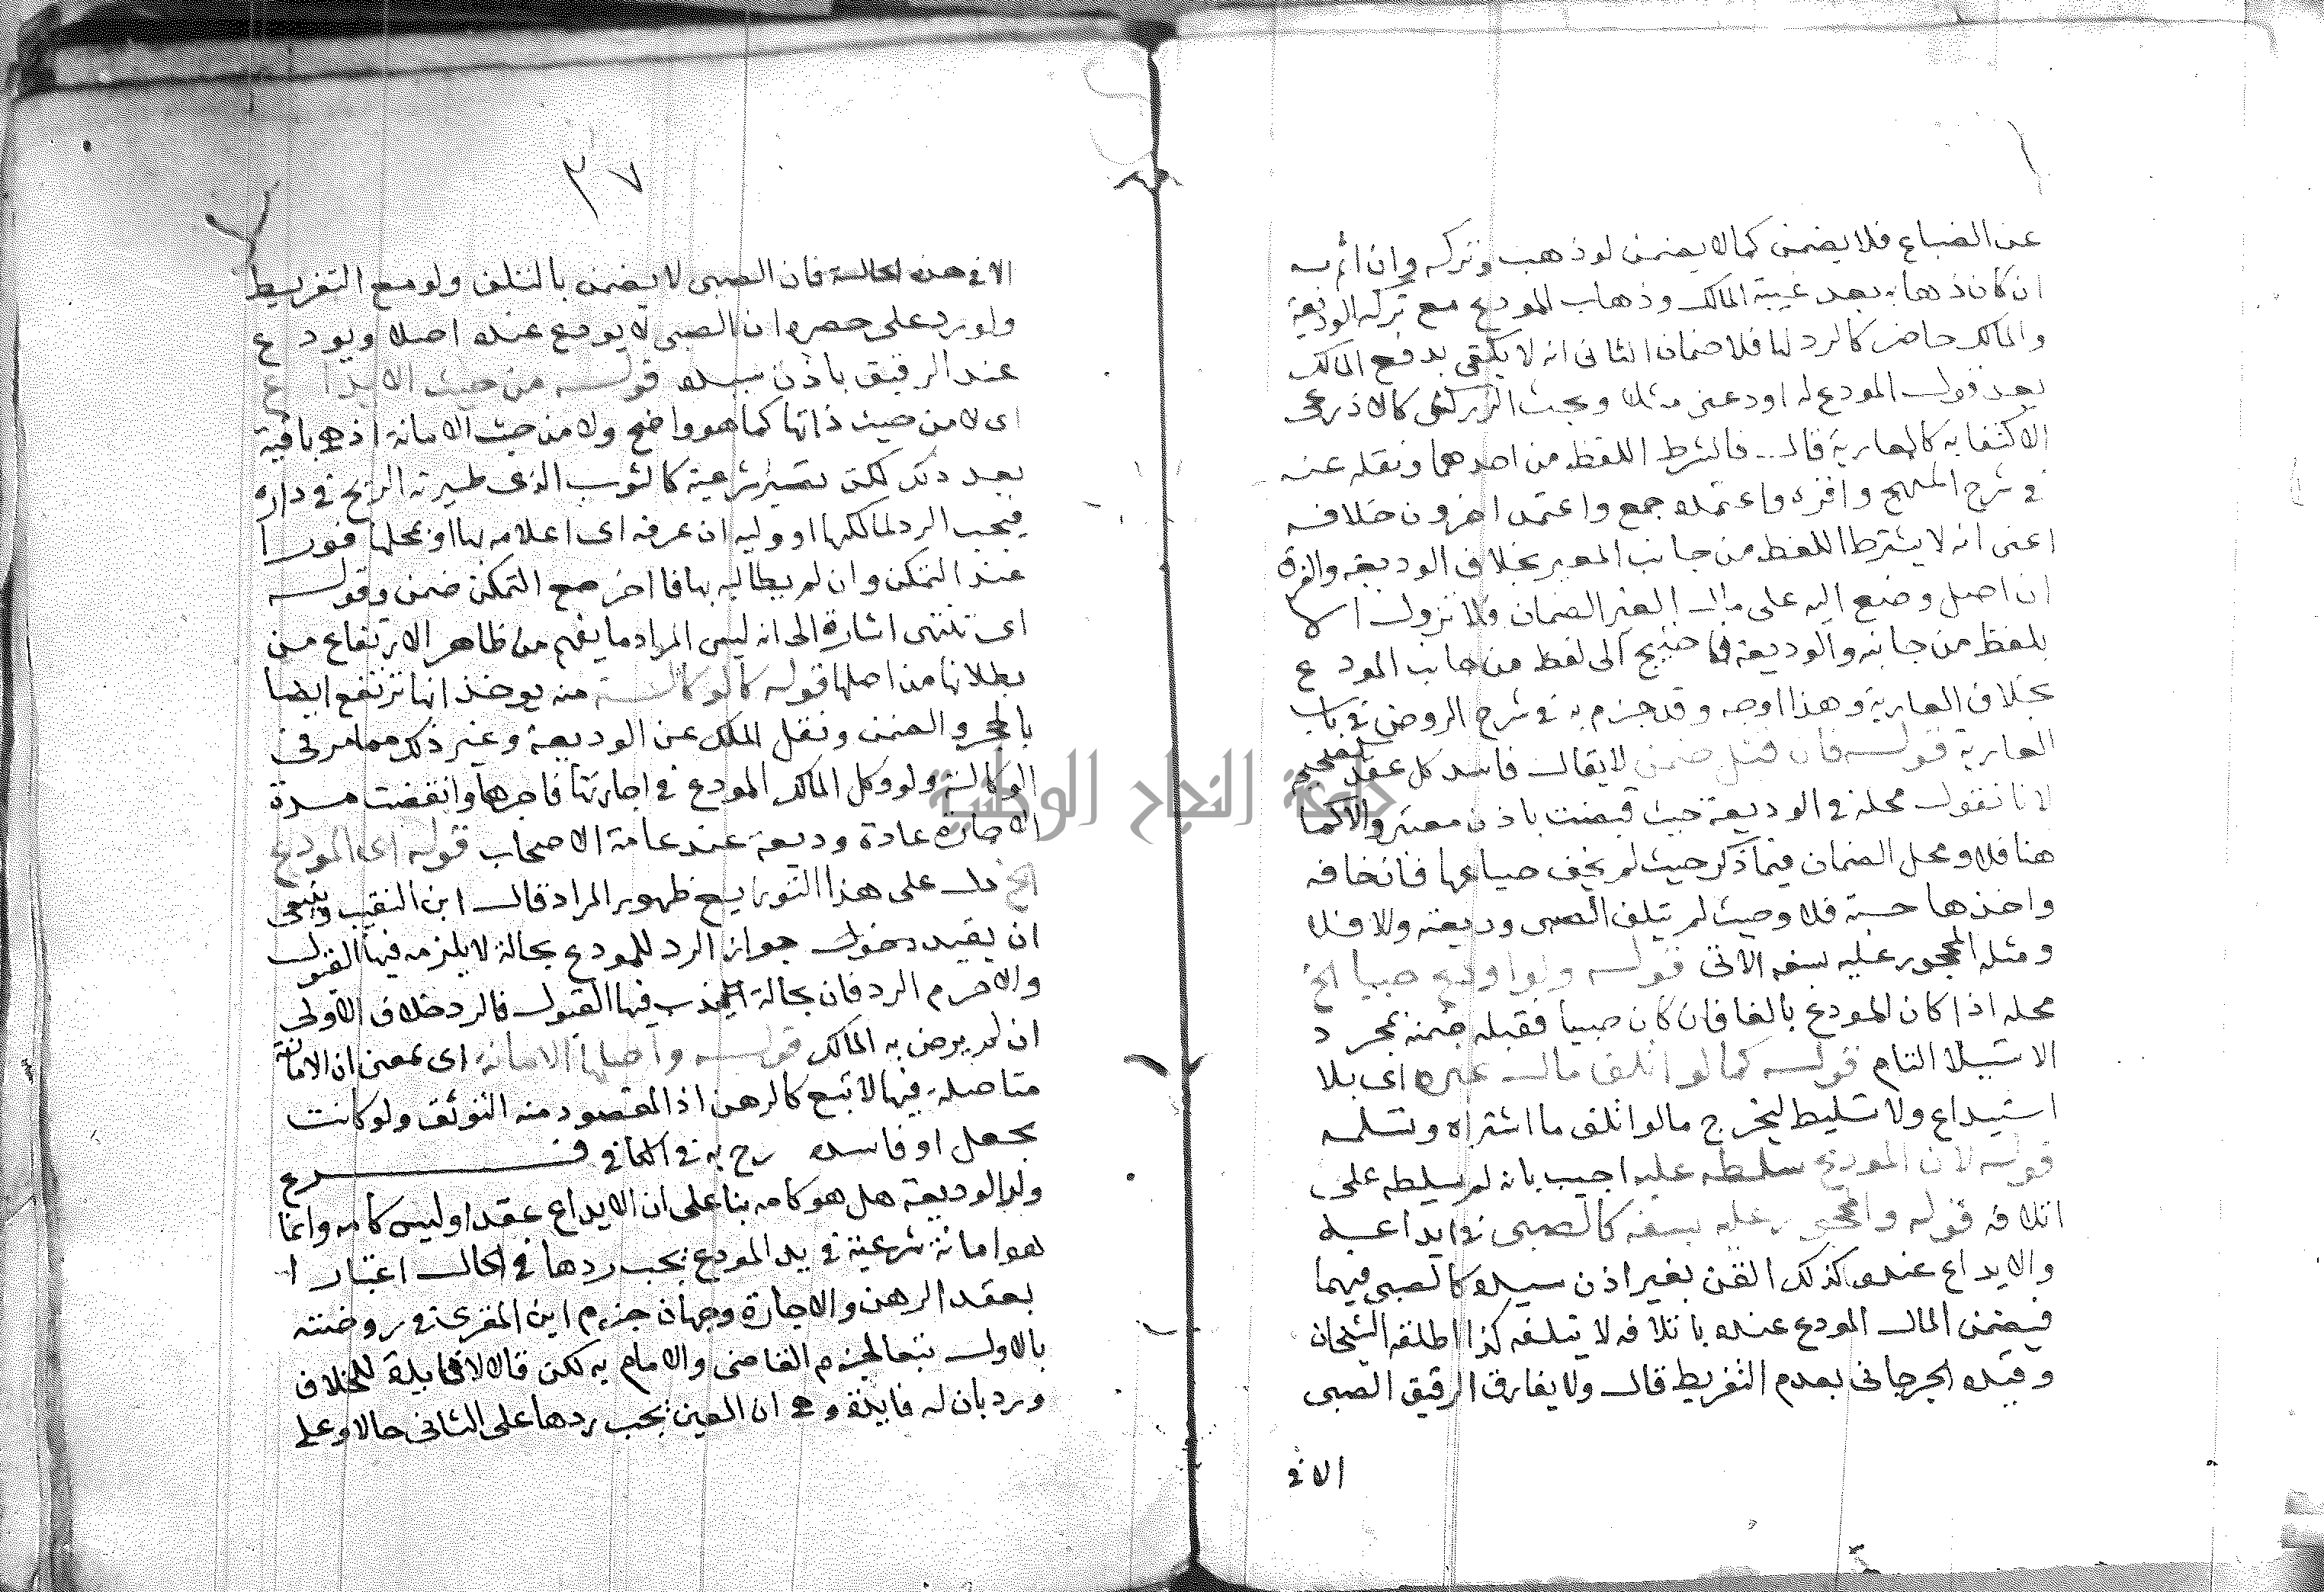 عن الضياع فلا يضمن كما لا يضمن لو ذهب وتركه وان أثم به
ان كان ذهابه بعد غيبة المالك وذهاب المودع مع تركه الوديعة
والمالك حاضر كالرد لها فلا ضمان الثاني انه لا يكفي بدفع المالك
بعد قول المودع له اودعني مثلا وبحث الزركشي كالاذرعي
الاكتفا به كالعارية قال فالشرط اللفظ من احدهما ونقله عنه
في شرح المنهج واقره واعتمده جمع واعتمد اخرون خلافه
اعني انه لا يشترط اللفظ من جانب المعير بخلاف الوديعة والفرق
ان اصل وضع اليد على مال الغير الضمان ولا تزول الا
بلفظ من جانبه والوديعة فاحتيج الى لفظ من جانب المودع
بخلاف العارية وهذا اوجه وقد جزم به في شرح الروض في باب
العارية قوله فان قبل ضمن لا يقال فاسد كل عقد كصحيحه
لانا نقول محله في الوديعة حيث قبضت باذن معتبر والا كما
هنا فلا ومحل الضمان فيما ذكر حيث لم يخف ضياعها فان خافه
واخذها حسبة فلا وحيث لم تتلف الصبي وديعته والا فلا
ومثله المحجور عليه بسفه الاتي قوله ولو اودع صبيا الخ
محله اذا كان المودع بالغا فان كان صبيا فقبله ضمنه بمجرد
الاستيلا التام قوله كما لو اتلف مال غيره اي بلا
استيداع ولا تسليط ليخرج ما لو اتلف ما اشتراه وتسلمه
قوله لان المودع سلطه عليه اجيب بانه لم يسلطه على
اتلافه قوله والمحجور عليه بسفه كالصبي في ايداعه
والايداع عنده كذلك القن بغير اذن سيده كالصبي فيهما
فيضمن المال المودع عنده باتلافه لا بتلفه كذا اطلقه الشيخان
وقيده الجرجاني بعدم التفريط قال ولا يفارق الرقيق الصبي
الا في
٣٧
الا في هذه الحالة فان الصبي لا يضمن بالتلف ولو مع التفريط
ولو يرد على حصره ان الصبي لا يودع عنده اصلا ويودع
عند الرقيق باذن سيده قوله من حيث الايداع
اي لا من حيث ذاتها كما هو واضح ولا من حيث الامانة اذ هي باقية
بعد ذلك لكن تصير شرعية كالثوب الذي طيرته الريح في داره
فيجب الرد لمالكها او وليه ان عرفه اي اعلامه بها او بمحلها فورا
عند التمكن وان لم يطالبه بها فان اخر مع التمكن ضمن وقوله
اي تنتهي اشارة الى انه ليس المراد ما يفهم من ظاهر الارتفاع من
بطلانها من اصلها قوله كالوكالة منه يوخذ انها ترتفع ايضا
بالحجر والضمن ونقل الملك عن الوديعة وغير ذلك مما مر في
الوكالة ولو وكل المالك المودع في اجارتها فاجرها وانقضت مدة
الاجارة عادة وديعة عند عامة الاصحاب قوله اي المودع
الخ دل على هذا التوزيع ظهور المراد قال ابن النقيب وينبغي
ان يقيد دخول جواز الرد للمودع بحالة لا يلزمه فيها القبول
والا حرم الرد فان بحالة يندب فيها القبول فالرد خلاف الاولى
ان لم يرض به المالك قوله واصلها الامانة اي بمعنى ان الامانة
متاصلة فيها لا تبع كالرهن اذ المقصود منه التوثق ولو كانت
بجعل او فاسده صرح به في الكافي فرع
ولد الوديعة هل هو كامه بنا على ان الايداع عقد او ليس كامه وانما
هو امانة شرعية في يد المودع يجب ردها في الحال اعتبارا
بعقد الرهن والاجارة وجهان جزم ابن المقري في روضته
بالاول تبعا لجزم القاضي والامام به لكن قالا لا فايدة للخلاف
ورد بان له فايدة وهي ان العين يجب ردها على الثاني حالا وعلى
جامعة النجاح الوطنية